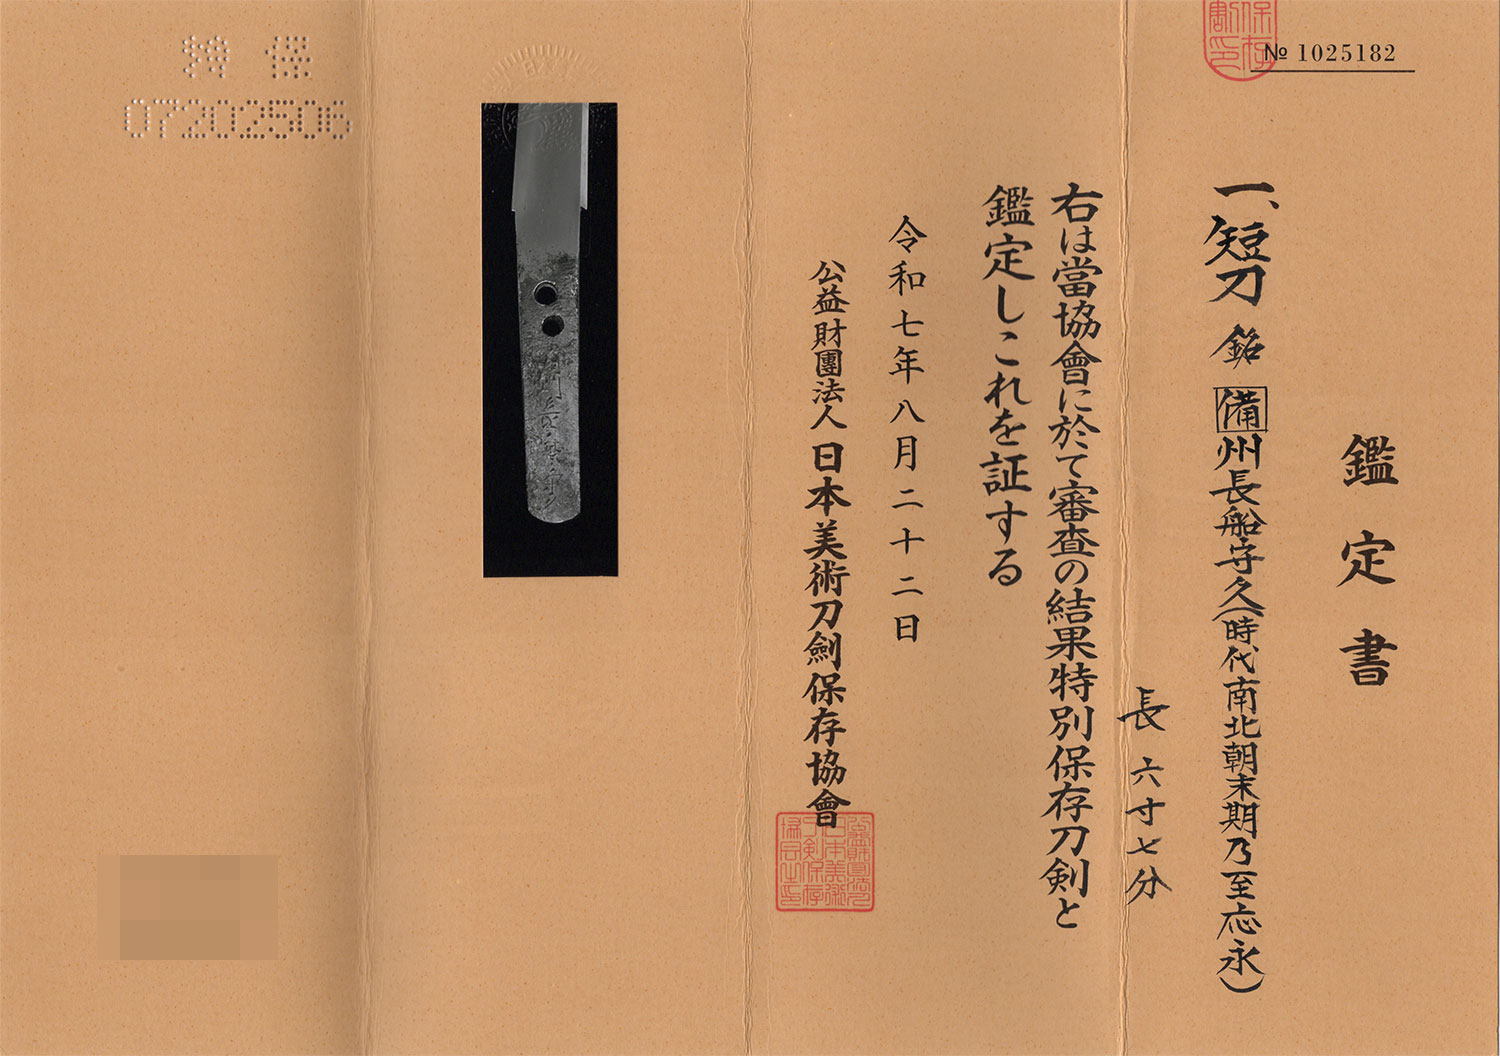 № 1025182
鑑定書
一、短刀 銘 備州長船守久(時代南北朝末期乃至応永)
長 六寸七分
右は當協會に於て審査の結果特別保存刀剣と
鑑定しこれを証する
令和七年八月二十二日
公益財團法人 日本美術刀劍保存協會
特 保
07202506